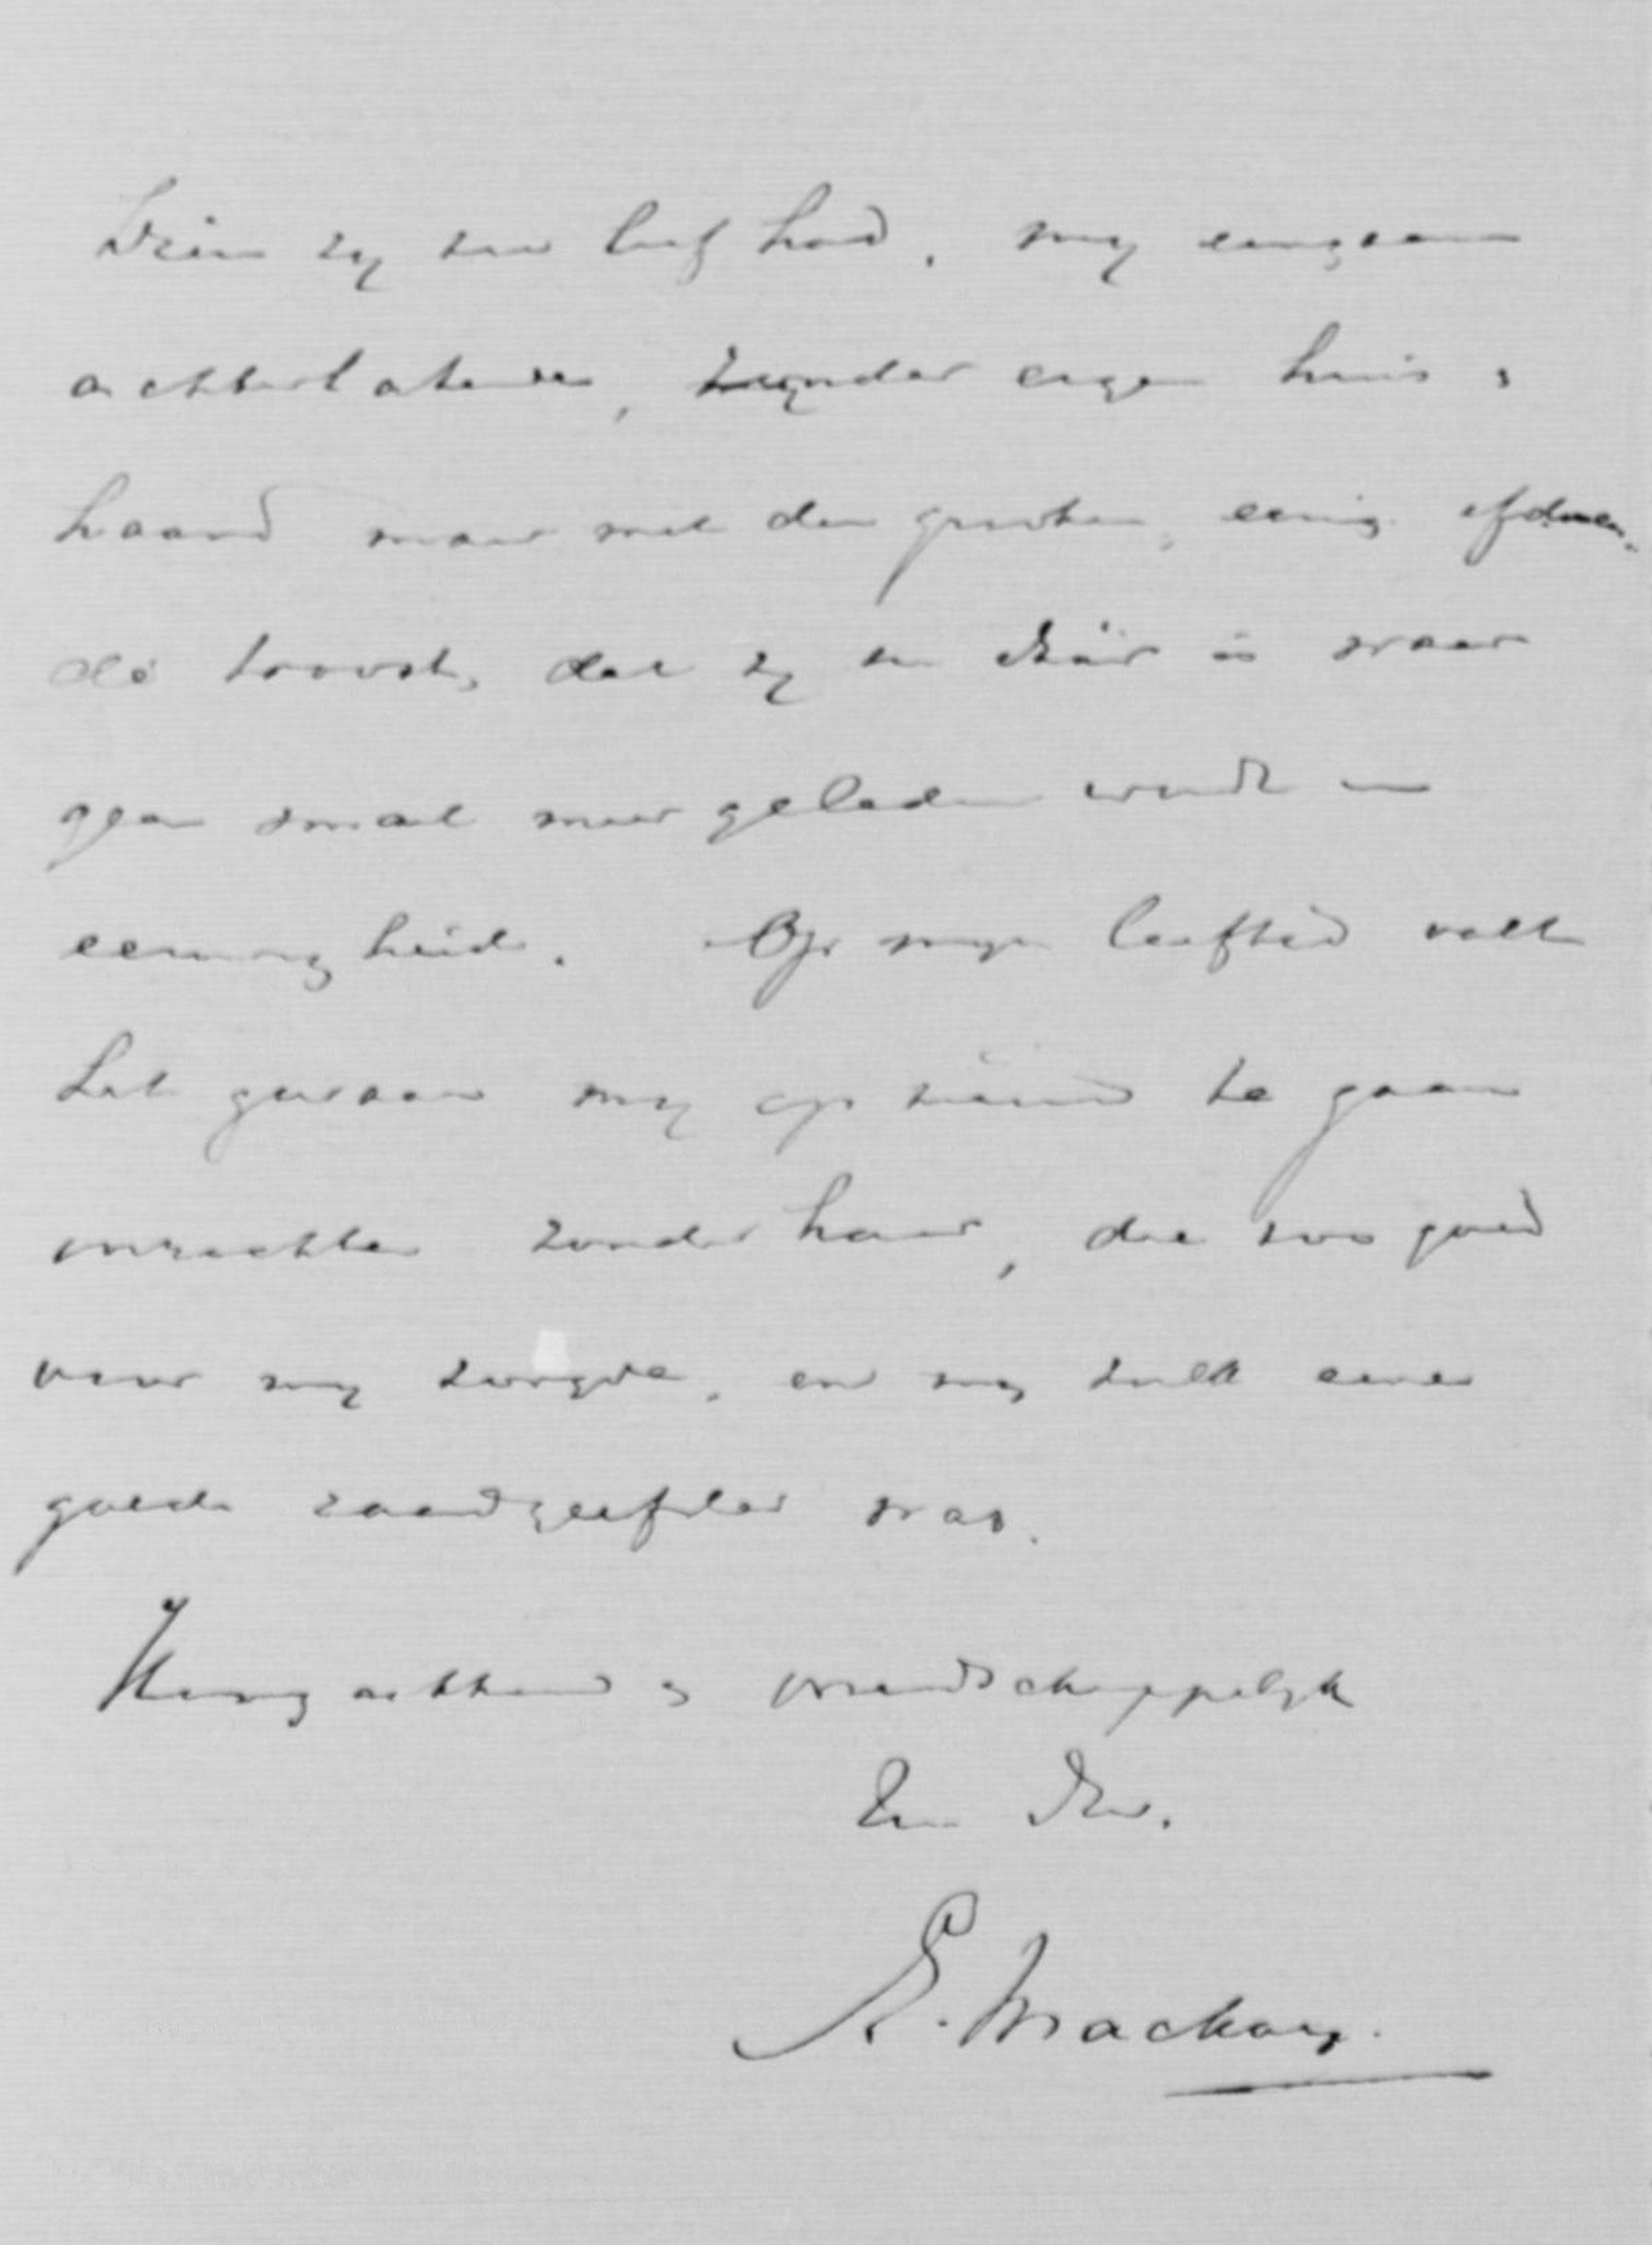 Dien zij zoo lief had, mij eenzaam
achterlatende, zonder eigen huis &
haard maar met den grooten, eenig afdoen-
de troost, dat zij nu dáár is waar
geen smart meer geleden wordt in
eeuwigheid. Op mijn leeftijd valt
het zwaar mij op nieuw te gaan
inrichten zonder haar, die zoo goed
voor mij zorgde, en mij zulk eene
goede raadgeefster was.
Hoogachtend & vriendschappelijk
Uw Dr.
E. Mackay.